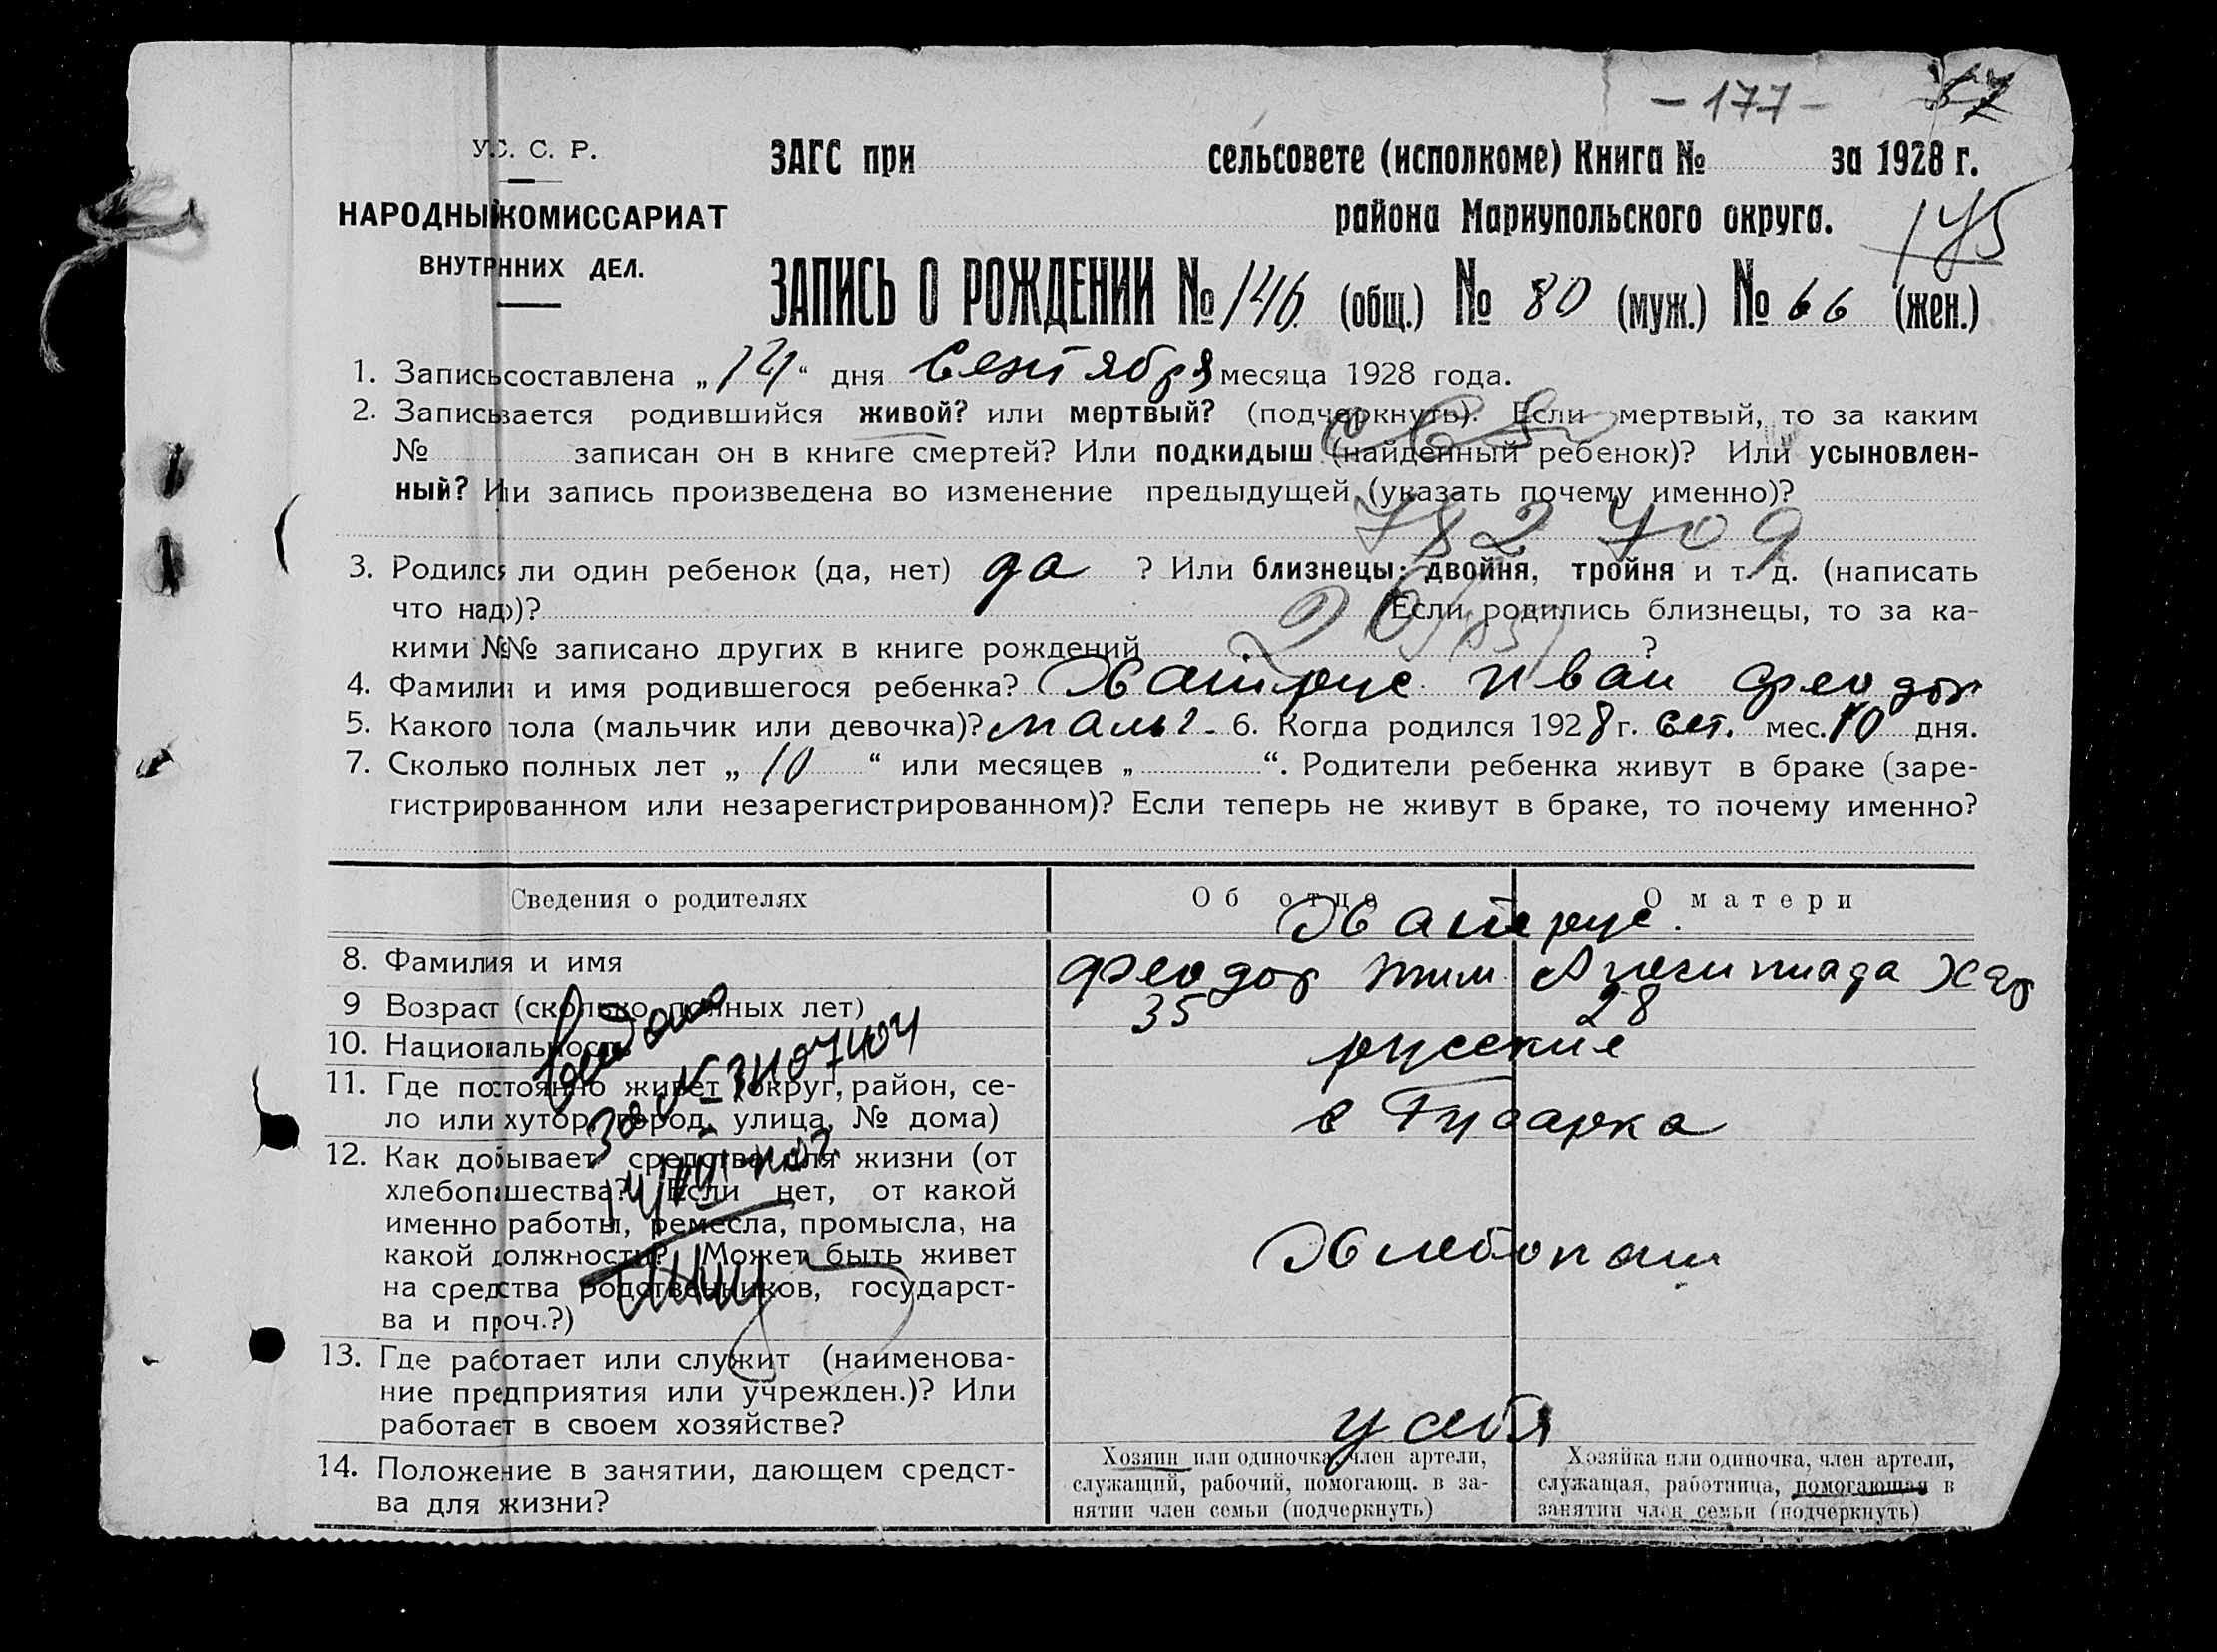 - 177 -
У.С. С. Р.
ЗАГС при сельсовете (исполкоме) Книга № за 1928 г.
НАРОДНЫЙ КОМИССАРИАТ
района Мариупольского округа.
175
ВНУТРННИХ ДЕЛ.
ЗАПИСЬ О РОЖДЕНИИ № 146 (общ.) № 80 (муж.) № 66 (жен.)
1. Запись составлена „14“ дня Сентября месяца 1928 года.
2. Записывается родившийся живой? или мертвый? (подчеркнуть). Если мертвый, то за каким
№ записан он в книге смертей? Или подкидыш (найденный ребенок)? Или усыновлен-
ный? Или запись произведена во изменение предыдущей (указать почему именно)?
782 709
3. Родился ли один ребенок (да, нет) да ? Или близнецы: двойня, тройня и т. д. (написать
что надо)? Если родились близнецы, то за ка-
кими №№ записано других в книге рождений ?
4. Фамилия и имя родившегося ребенка? Хатрус Иван Феодор
5. Какого пола (мальчик или девочка)? мальч. 6. Когда родился 1928 г. сет. мес. 10 дня.
7. Сколько полных лет „10“ или месяцев „ “. Родители ребенка живут в браке (заре-
гистрированном или незарегистрированном)? Если теперь не живут в браке, то почему именно?
Сведения о родителях Об отце О матери
Хатрус.
8. Фамилия и имя Феодор Тим
9 Возраст (сколько полных лет) 35 28
10. Национальность русские
11. Где постоянно живет (округ, район, се-
ло или хутор, город, улица, № дома)
с Гусарка
12. Как добывает средства для жизни (от
хлебопашества? Если нет, от какой
именно работы, ремесла, промысла, на
какой должности? Может быть живет
на средства родственников, государст-
ва и проч.?)
Хлебопаш
13. Где работает или служит (наименова-
ние предприятия или учрежден.)? Или
работает в своем хозяйстве?
у себя
14. Положение в занятии, дающем средст-
ва для жизни?
Хозяин или одиночка, член артели,
служащий, рабочий, помогающ. в за-
нятии член семьи (подчеркнуть)
Хозяйка или одиночка, член артели,
служащая, работница, помогающая в
занятии член семьи (подчеркнуть)